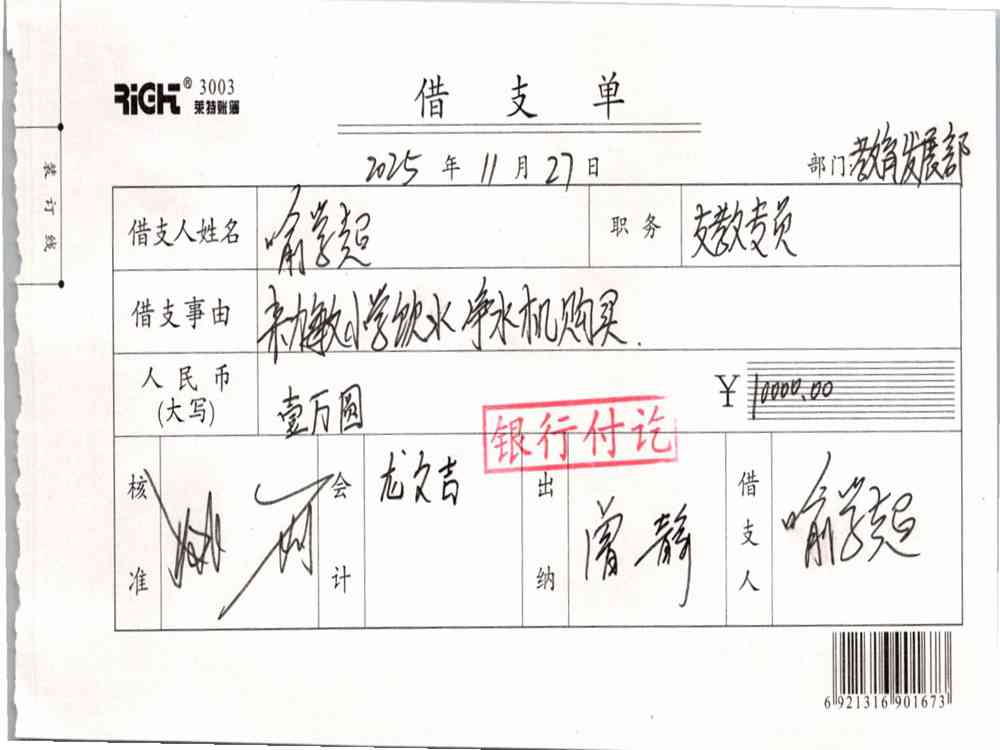 RiGHT® 3003
莱特账簿
借支单
2025年11月27日
部门 教育发展部
装订线
借支人姓名 喻学超 职务 支教专员
借支事由 小学饮水净水机购买.
人民币(大写) 壹万圆 ¥10000.00
银行付讫
核准 会计 龙文吉 出纳 曾静 借支人 喻学超
6 921316 901673